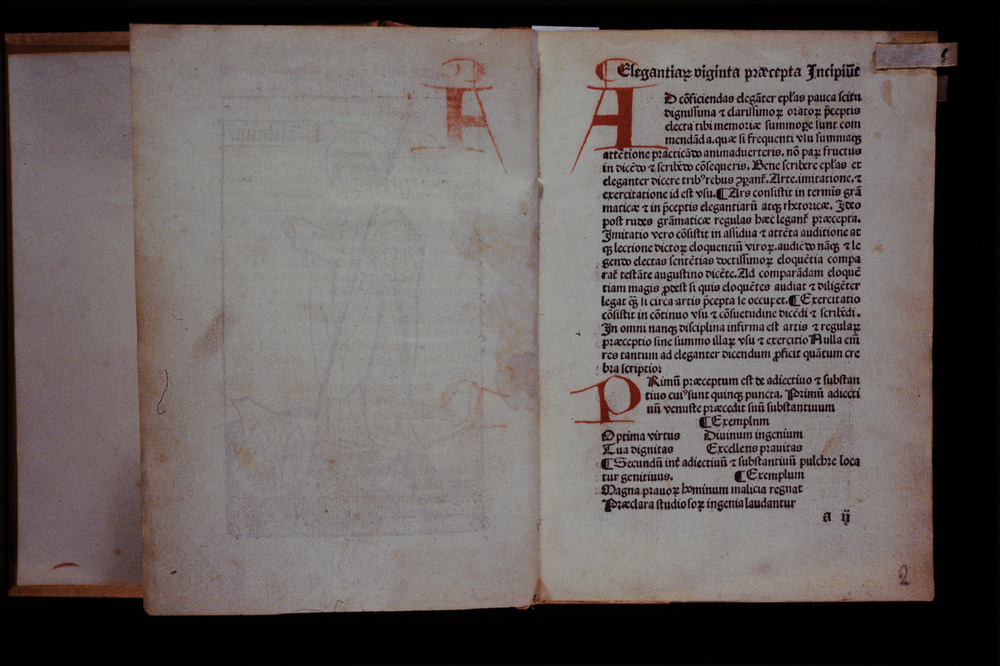 Elegantiaꝝ viginta præcepta Incipiūt
AD cōficiendas elegāter ep̄las pauca scitu
dignissima ⁊ clarissimoꝝ oratoꝝ p̄ceptis
electa tibi memoriæ summope sunt com
mendāda. quæ si frequenti vsu summaqꝫ
attētione practicādo animaduerteris. nō paꝝ fructus
in dicēdo ⁊ scribēdo cōsequeris. Bene scribere ep̄las et
eleganter dicere tribꝰ rebus ꝯparat̄. Arte. imitatione. ⁊
exercitatione id est vsu. ¶ Ars consistit in termīs grā
maticæ ⁊ in p̄ceptis elegantiarū atqꝫ rhetoricæ. Ideo
post rudes grāmaticæ regulas hæc legant̄ præcepta.
Imitatio vero cōsistit in assidua ⁊ attēta auditione at
qꝫ lectione dictoꝝ eloquentiū viroꝝ. audiēdo nāqꝫ ⁊ le
gendo electas sentētias doctissimoꝝ eloquētia compa
rat̄ testāte augustino dicēte. Ad comparādam eloquē
tiam magis ꝓdest si quis eloquētes audiat ⁊ diligēter
legat qꝫ̄ si circa artis p̄cepta se occupet. ¶ Exercitatio
cōsistit in cōtinuo vsu ⁊ cōsuetudine dicēdi ⁊ scribēdi.
In omni nanqꝫ disciplina infirma est artis ⁊ regulaꝝ
præceptio sine summo illaꝝ vsu ⁊ exercitio Nulla em̄
res tantum ad eleganter dicendum ꝓficit quātum cre
bra scriptior
PRimū præceptum est de adiectiuo ⁊ substan
tiuo cuiꝰ sunt quinqꝫ puncta. Primū adiecti
uū venuste præcedit suū substantiuum
¶ Exemplnm
Optima virtus Diuinum ingenium
Tua dignitas Excellens prauitas
¶ Secundū int̄ adiectiuū ⁊ substantiuū pulchre loca
tur genitiuus. ¶ Exemplum
Magna prauoꝝ hominum malicia regnat
Præclara studiosoꝝ ingenia laudantur
a ij
2